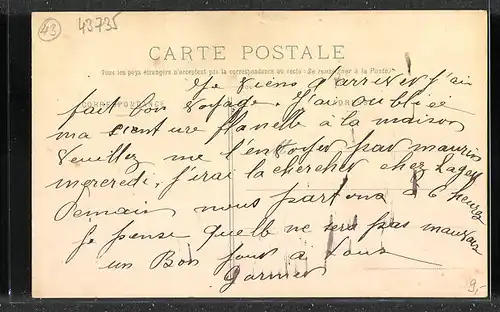 43 43735
CARTE POSTALE
Tous les pays étrangers n'acceptent pas la correspondance au recto (Se renseigner à la Poste)
CORRESPONDANCE
Je viens d'arriver j'ai
fait bon voyage. J'ai oublié
ma flanelle à la maison
veuillez me l'envoyer par maurin
mercredi, j'irai la chercher chez
Demain nous partons à 6 heures
Je pense quelle ne sera pas
un Bon jour à tous
Garnier
9,-